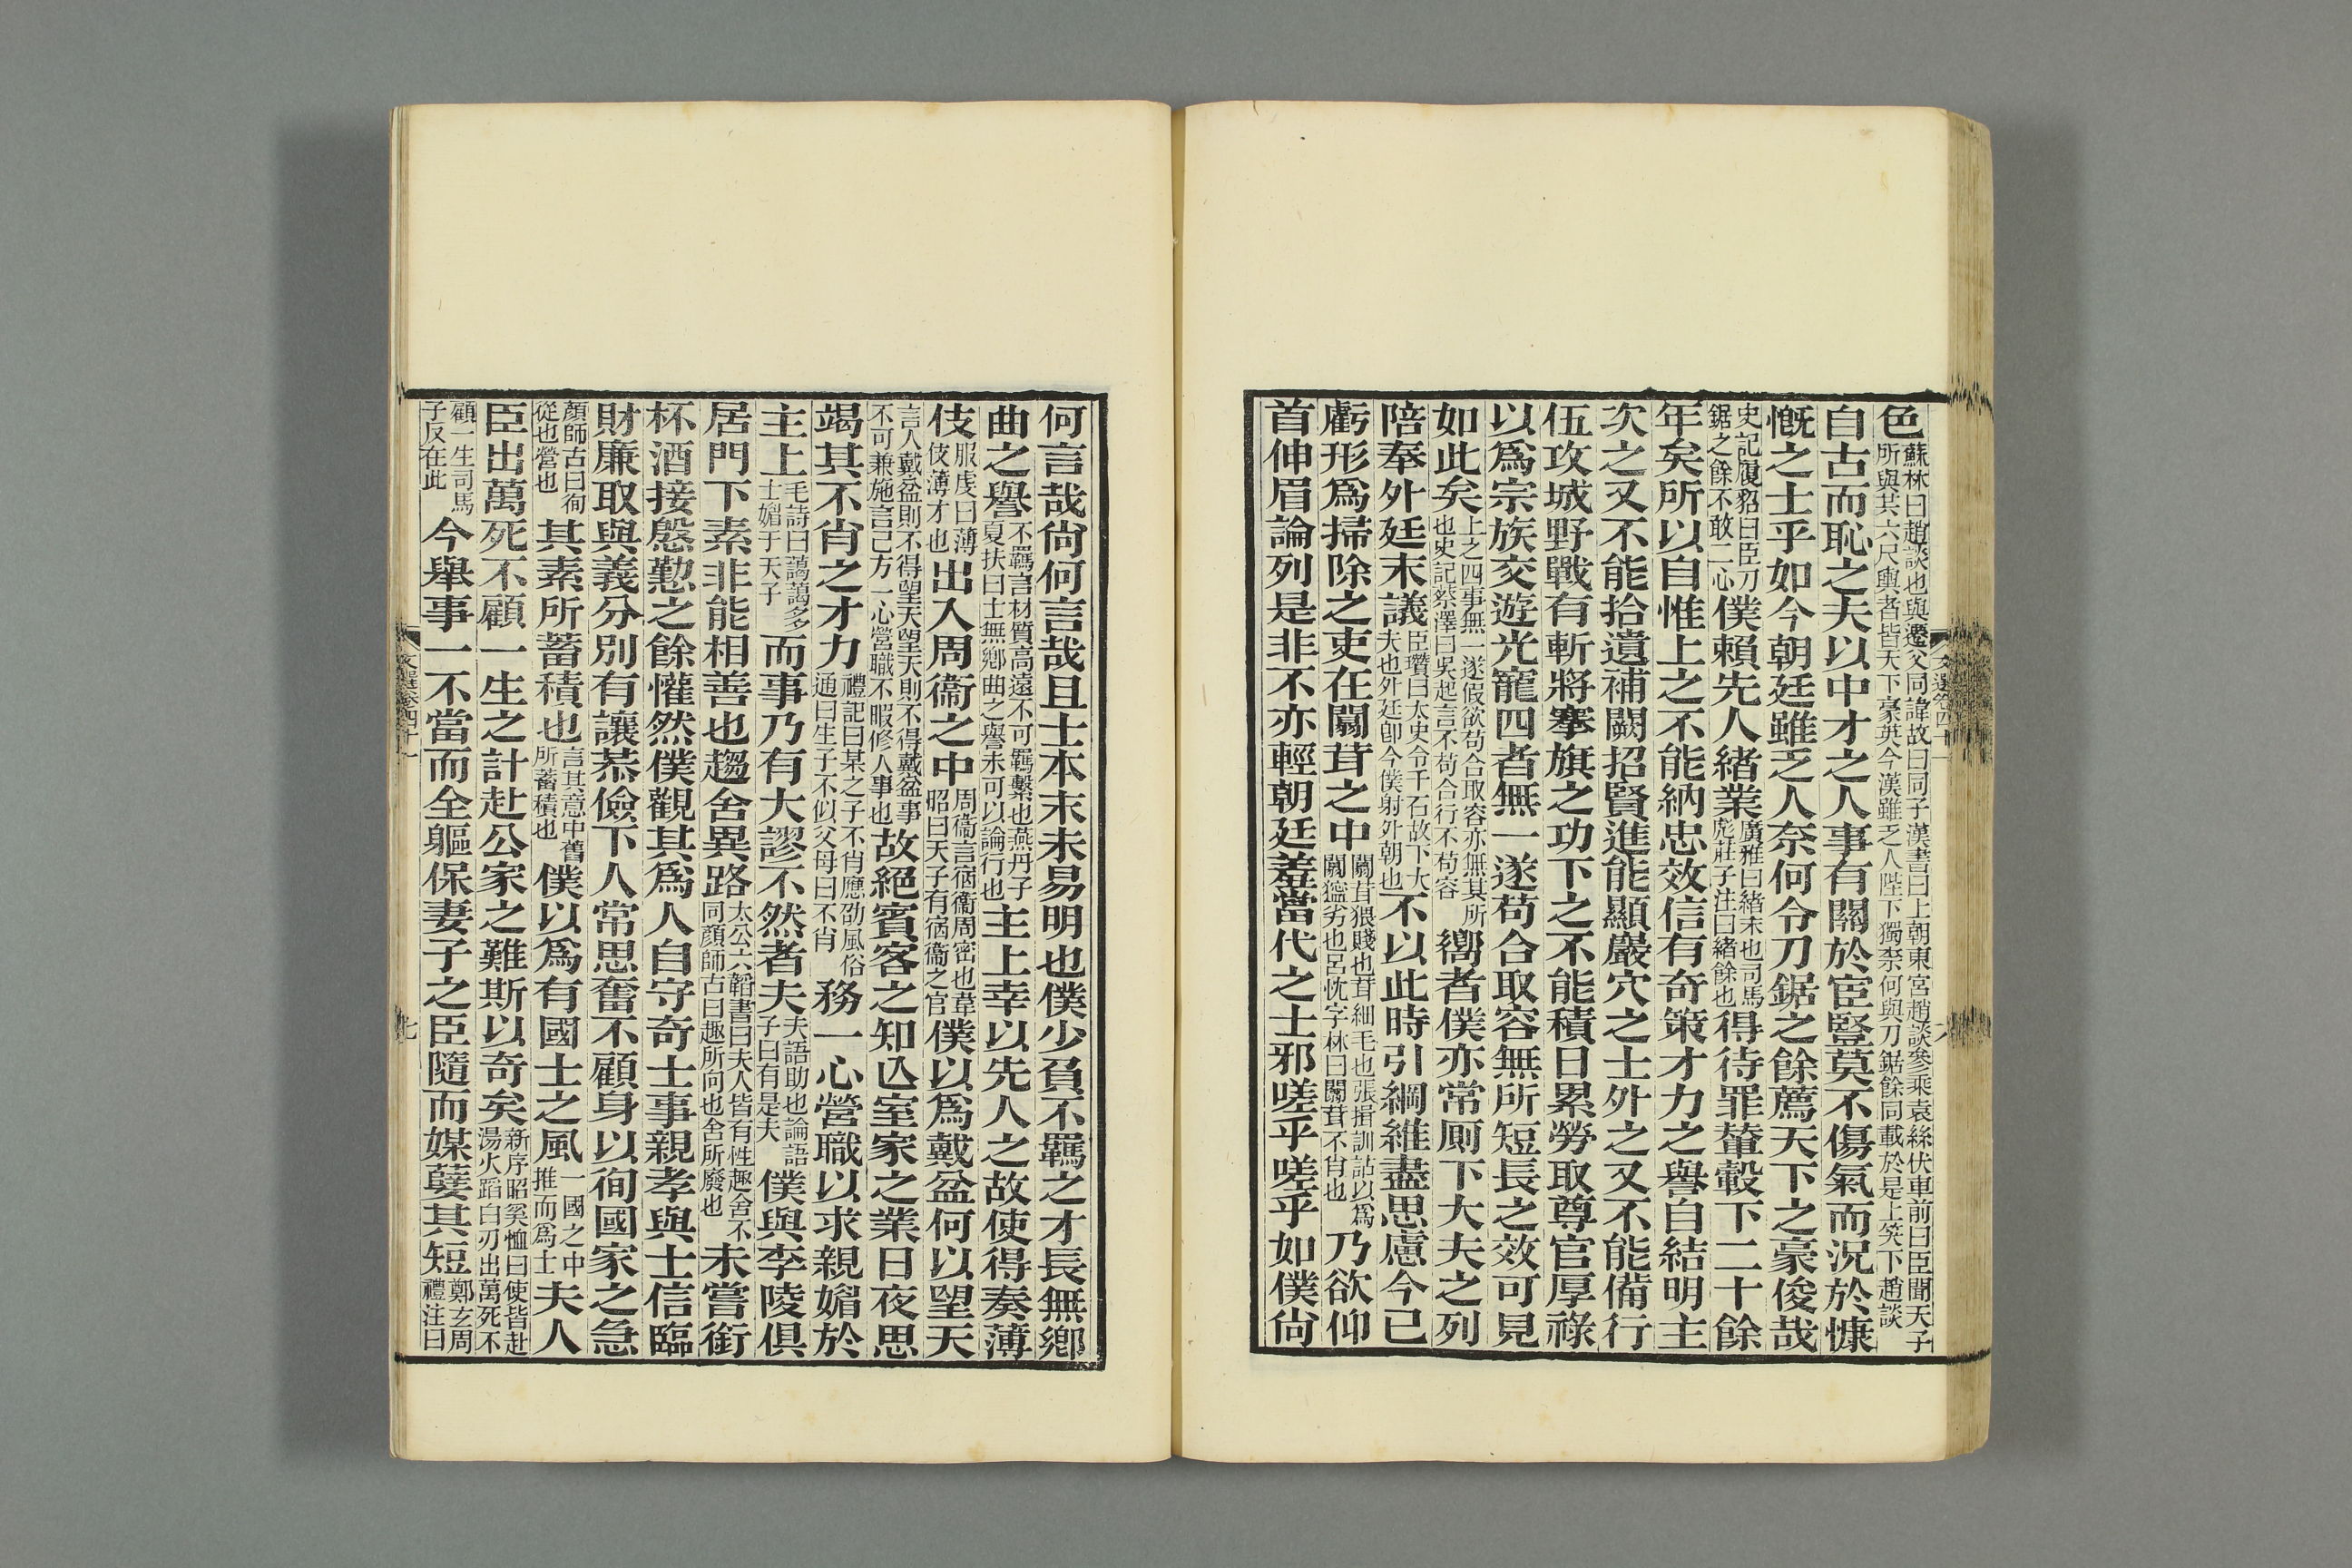 色蘇林曰趙談也與遷父同諱故曰同子漢書曰上朝東宮趙談參乘袁絲伏車前曰臣聞天子所與共六尺輿者皆天下豪英今漢雖乏人陛下獨奈何與刀鋸餘同載於是上笑下趙談
自古而恥之夫以中才之人事有關於宦豎莫不傷氣而況於慷
慨之士乎如今朝廷雖乏人奈何令刀鋸之餘薦天下之豪俊哉
史記履貂曰臣刀鋸之餘不敢二心僕賴先人緒業廣雅曰緒末也司馬彪莊子注曰緒餘也得待罪輦轂下二十餘
年矣所以自惟上之不能納忠效信有奇策才力之譽自結明主
次之又不能拾遺補闕招賢進能顯巖穴之士外之又不能備行
伍攻城野戰有斬將搴旗之功下之不能積日累勞取尊官厚祿
以爲宗族交遊光寵四者無一遂苟合取容無所短長之效可見
如此矣上之四事無一遂假欲苟合取容亦無其所也史記蔡澤曰吳起言不苟合行不苟容嚮者僕亦常厠下大夫之列
陪奉外廷末議臣瓚曰太史令千石故下大夫也外廷卽今僕射外朝也不以此時引綱維盡思慮今已
虧形爲掃除之吏在闒茸之中闒茸猥賤也茸細毛也張揖訓詁以爲闒劣也呂忱字林曰闒茸不肖也乃欲仰
首伸眉論列是非不亦輕朝廷羞當代之士邪嗟乎嗟乎如僕尚
文選卷四十一
六
何言哉尚何言哉且士本末未易明也僕少負不羈之才長無鄉
曲之譽不羈言材質高遠不可羈繫也燕丹子夏扶曰士無鄉曲之譽未可以論行也主上幸以先人之故使得奏薄
伎服虔曰薄伎薄才也出入周衞之中周衞言宿衞周密也韋昭曰天子有宿衞之官僕以爲戴盆何以望天
言人戴盆則不得望天望天則不得戴盆事不可兼施言己方一心營職不暇修人事也故絕賓客之知亾室家之業日夜思
竭其不肖之才力禮記曰某之子不肖應劭風俗通曰生子不似父母曰不肖務一心營職以求親媚於
主上毛詩曰藹藹多士媚于天子而事乃有大謬不然者夫夫語助也論語子曰有是夫僕與李陵俱
居門下素非能相善也趨舍異路太公六韜書曰夫人皆有性趣舍不同顏師古曰趣所向也舍所廢也未嘗銜
杯酒接慇懃之餘懽然僕觀其爲人自守奇士事親孝與士信臨
財廉取與義分別有讓恭儉下人常思奮不顧身以徇國家之急
顏師古曰徇從也營也其素所蓄積也言其意中舊所蓄積也僕以爲有國士之風一國之中推而爲士夫人
臣出萬死不顧一生之計赴公家之難斯以奇矣新序昭奚恤曰使皆赴湯火蹈白刃出萬死不
顧一生司馬子反在此今舉事一不當而全軀保妻子之臣隨而媒孽其短鄭玄周禮注曰
文選卷四十一
七